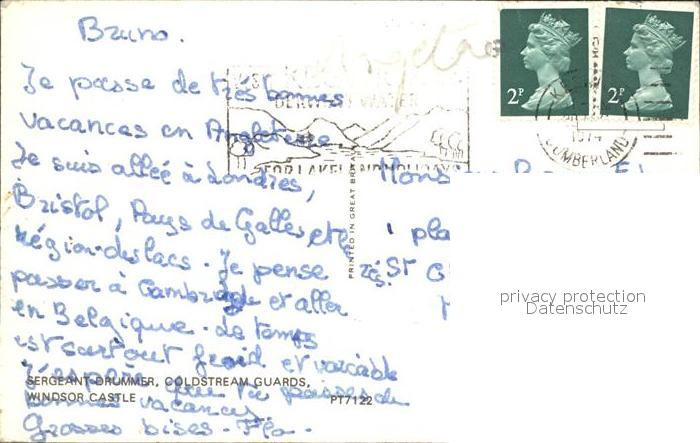 Bruno.
Je passe de très bonnes
vacances en Angleterre
Je suis allée à Londres,
Bristol, Pays de Galles, et
région des lacs. Je pense
passer à Cambridge et aller
en Belgique. Le temps
est surtout froid et variable
J'espère que tu passes de
bonnes vacances
Grosses bises. Flo.
DERWENTWATER
FOR LAKELAND HOLIDAYS
2P
2P
1974
CUMBERLAND
PRINTED IN GREAT BRITAIN
pla
St
privacy protection
Datenschutz
SERGEANT DRUMMER, COLDSTREAM GUARDS,
WINDSOR CASTLE PT7122